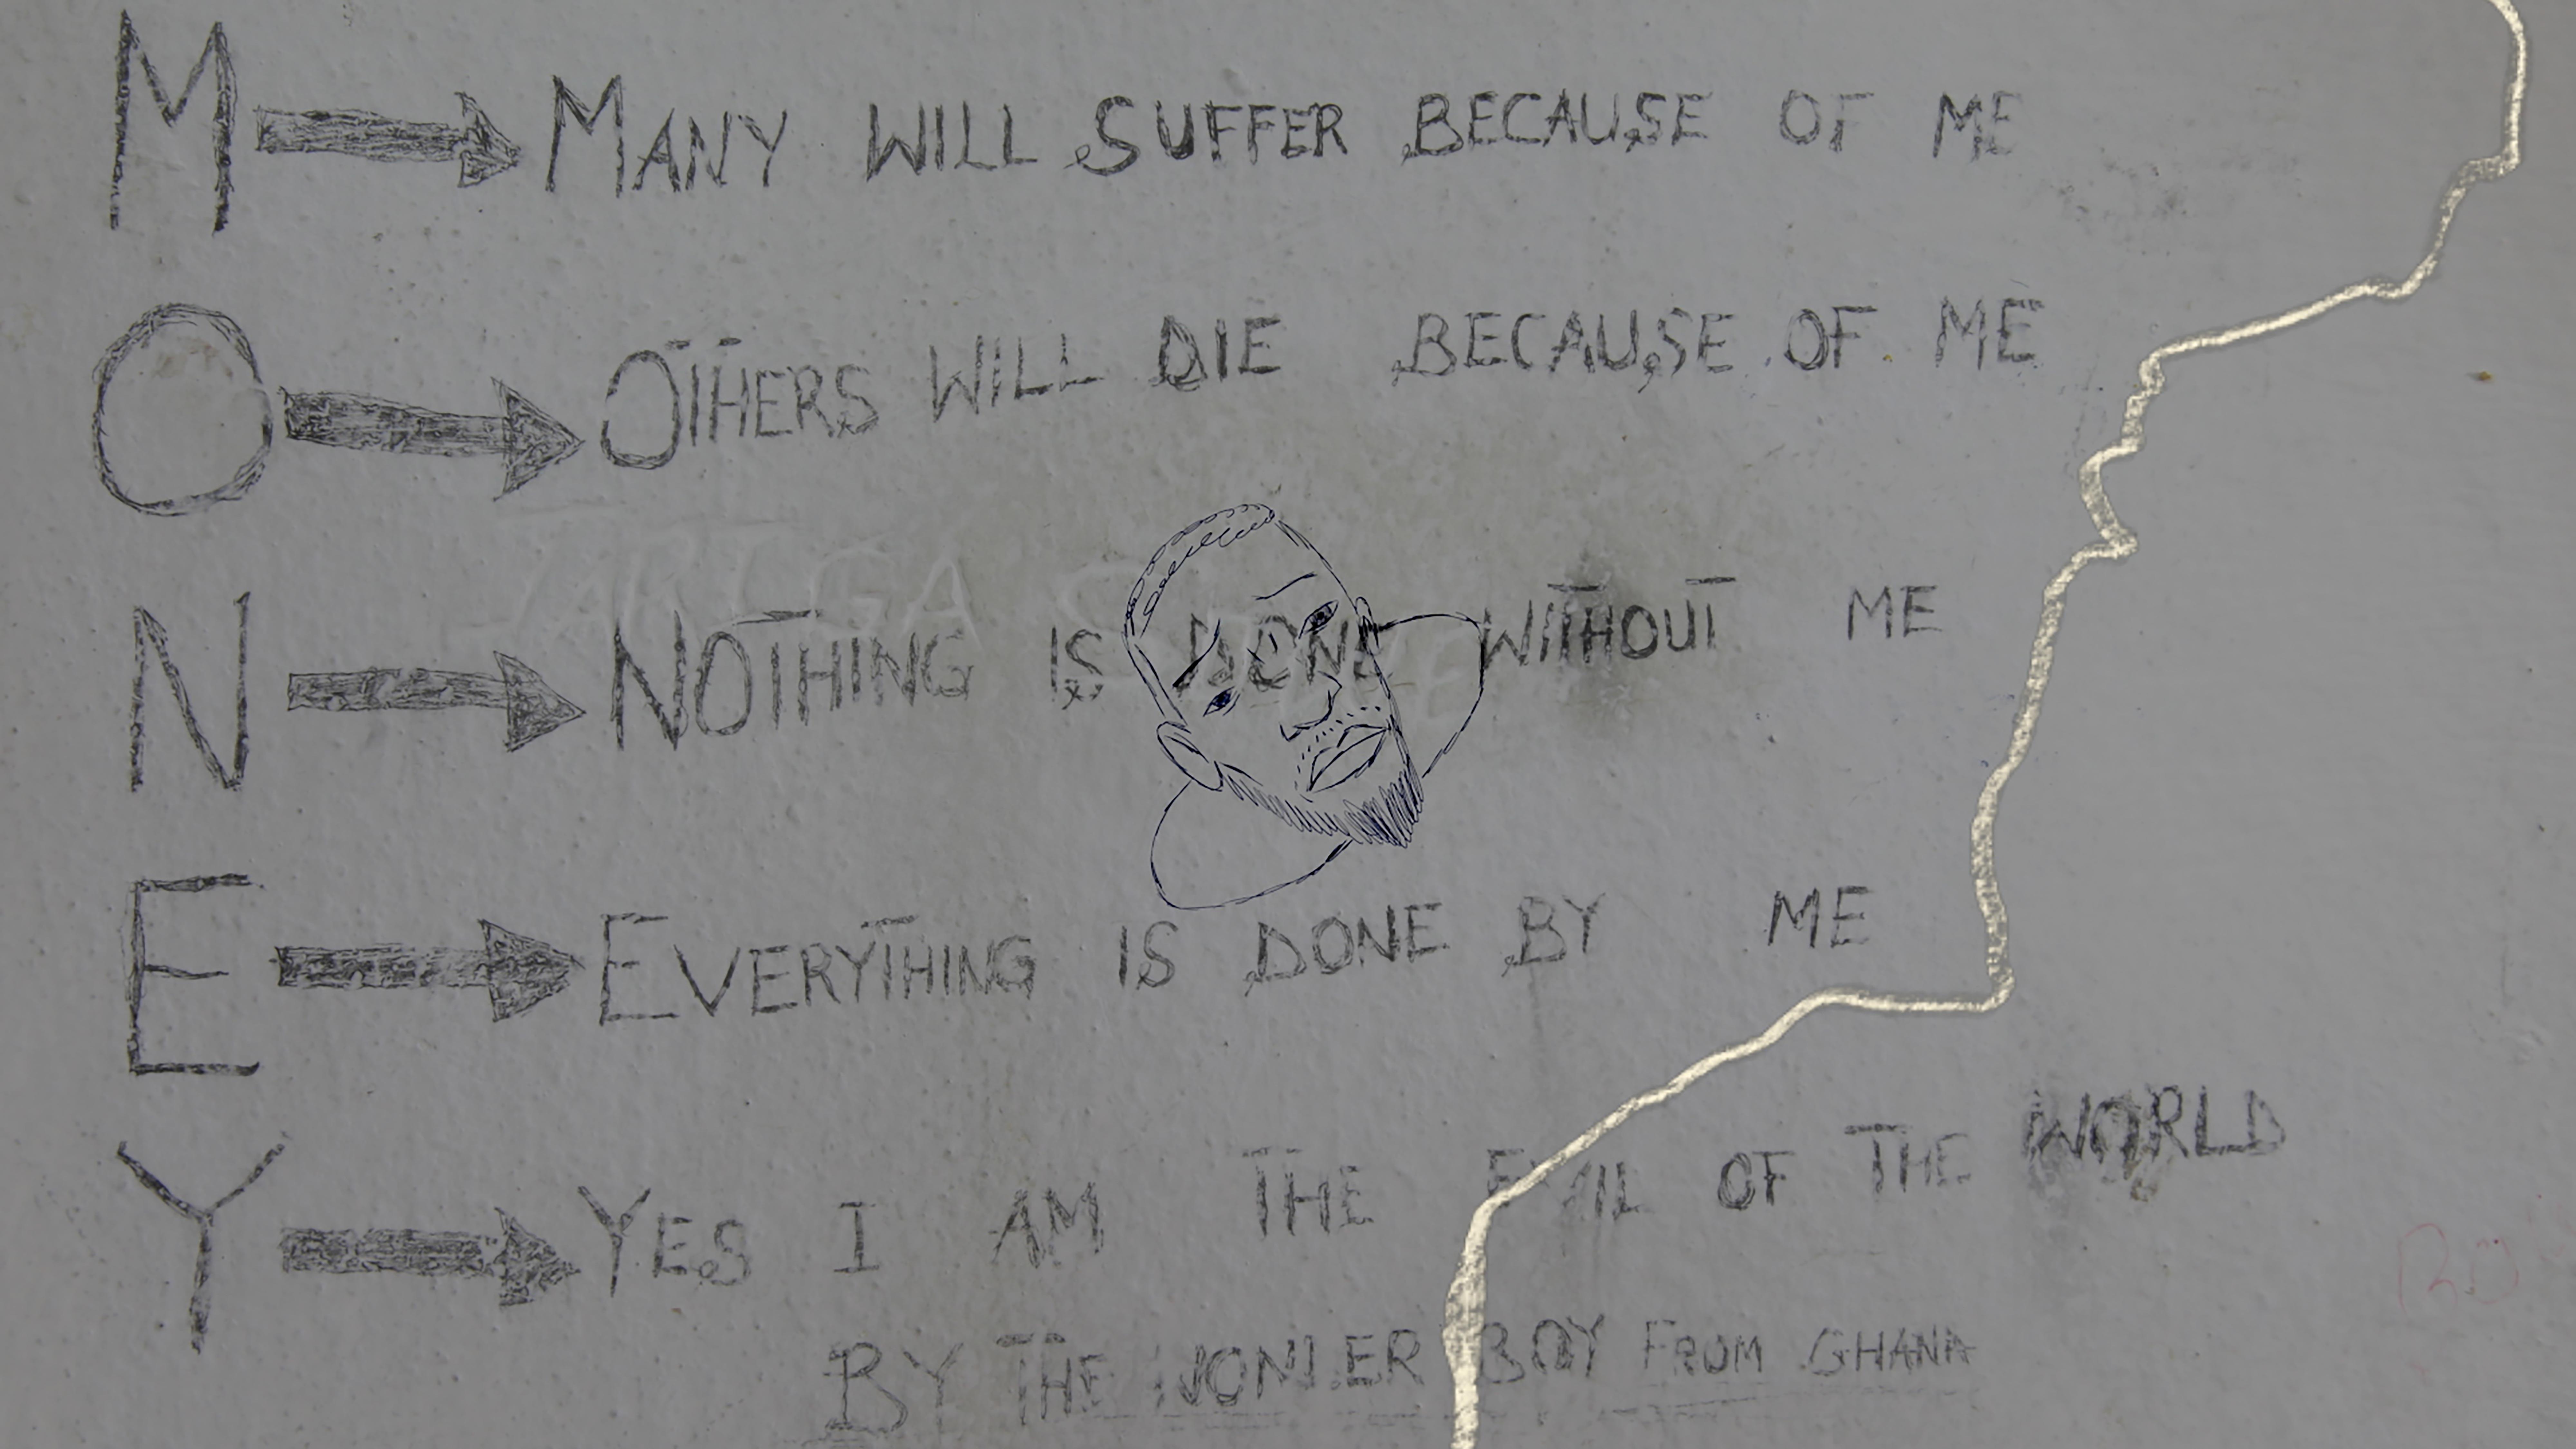 M → MANY WILL SUFFER BECAUSE OF ME
O → OTHERS WILL DIE BECAUSE OF ME
N → NOTHING IS DONE WITHOUT ME
E → EVERYTHING IS DONE BY ME
Y → YES I AM THE EVIL OF THE WORLD
BY THE BOY FROM GHANA